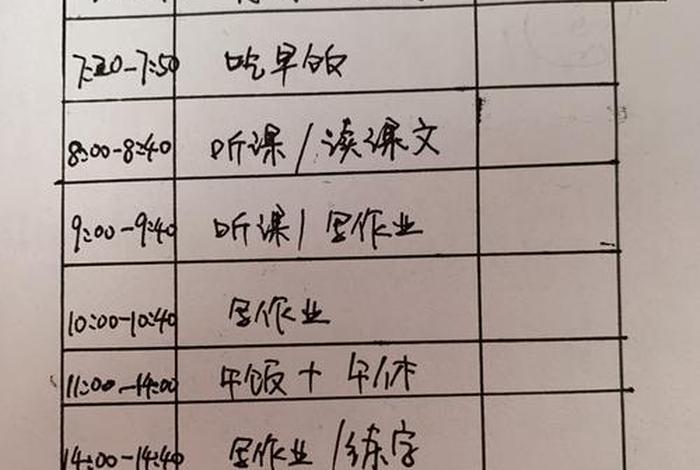 7:20-7:50 吃早饭
8:00-8:40 听课/读课文
9:00-9:40 听课/写作业
10:00-10:40 写作业
11:00-14:00 午饭+午休
14:00-14:40 写作业/练字